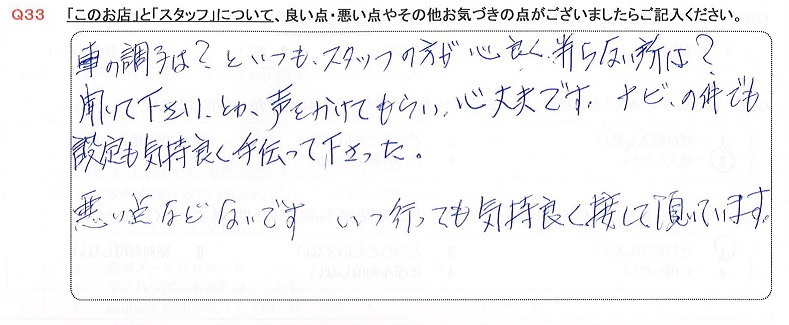 Q33 「このお店」と「スタッフ」について、良い点・悪い点やその他お気づきの点がございましたらご記入ください。
車の調子は？といつも、スタッフの方が心良く、判らない所は？
聞いて下さい、とか、声をかけてもらい、心丈夫です。ナビ、の件でも
設定も気持良く手伝って下さった。
悪い点などないです いつ行っても気持良く、接して頂いています。